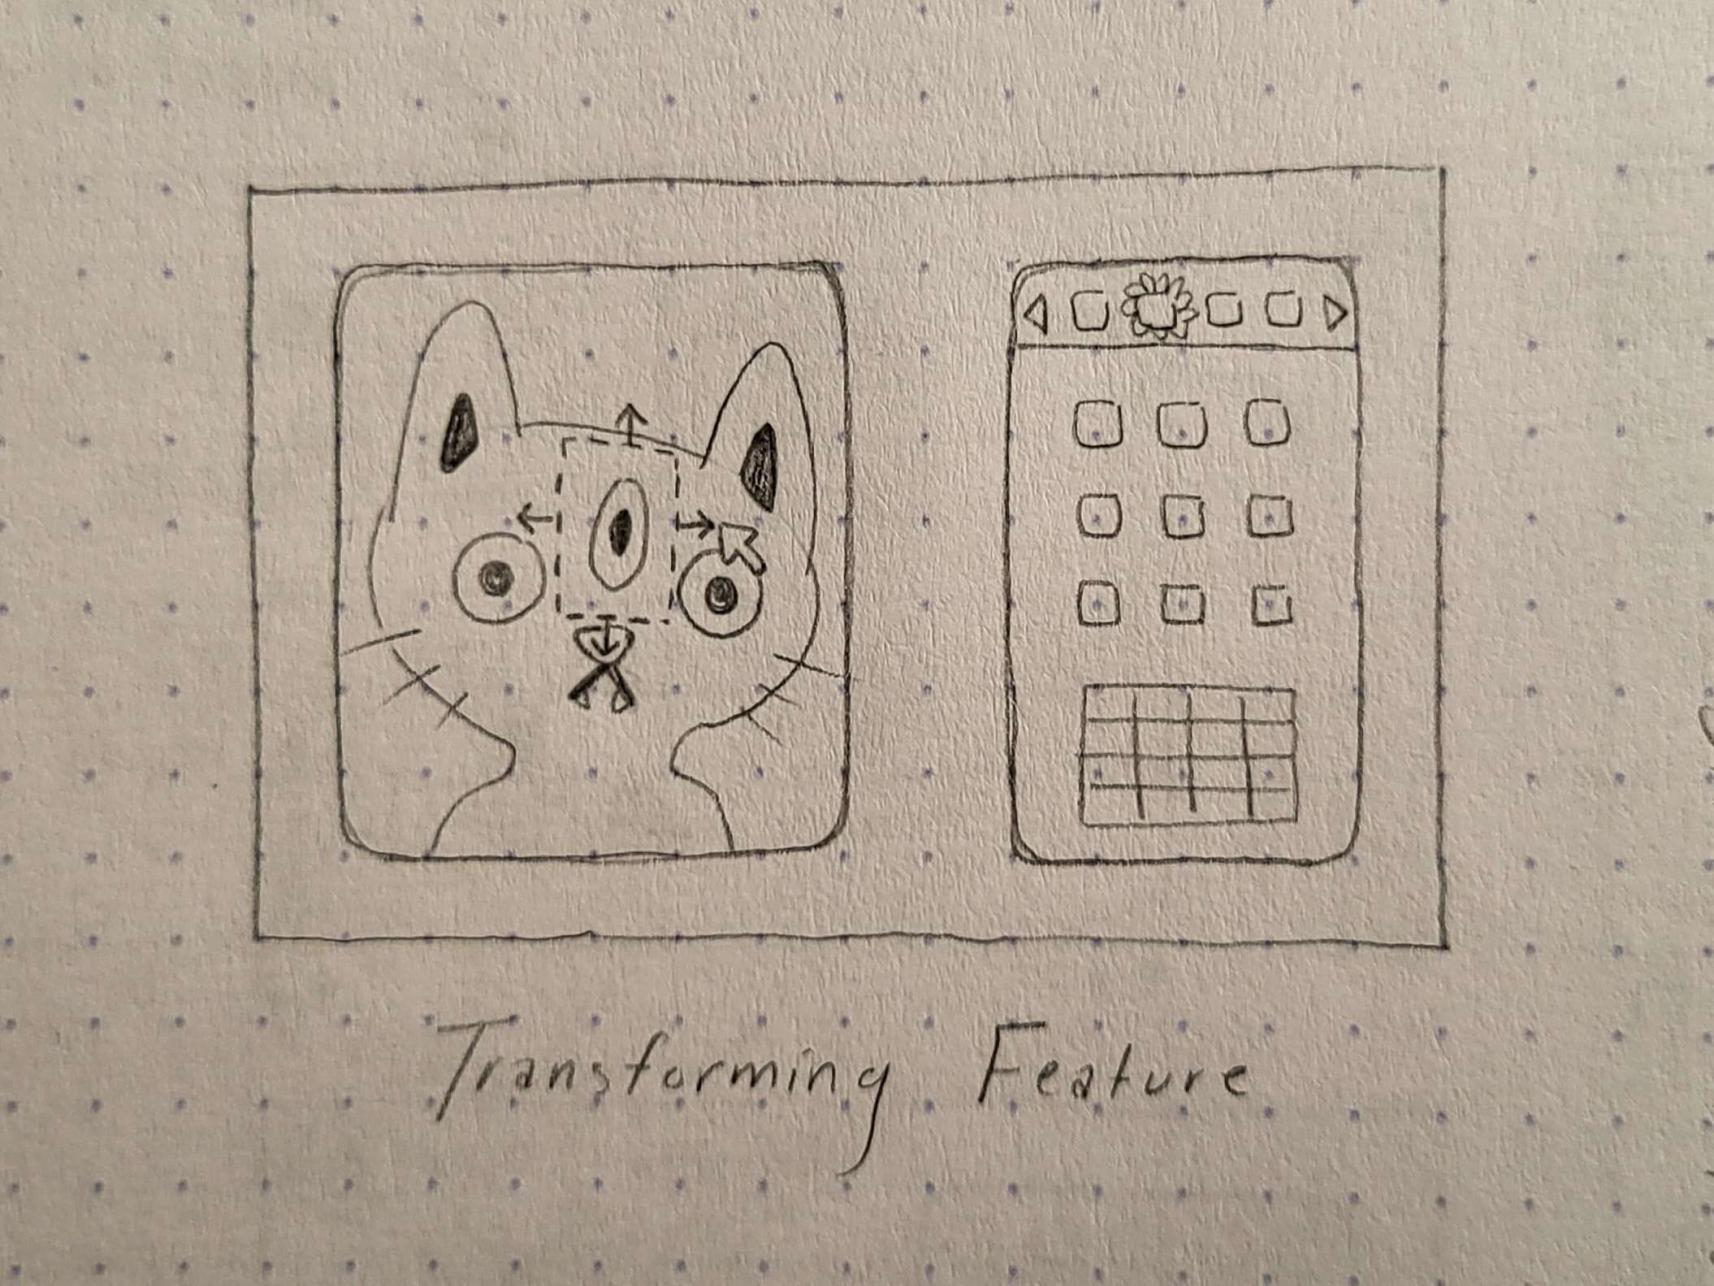 Transforming Feature